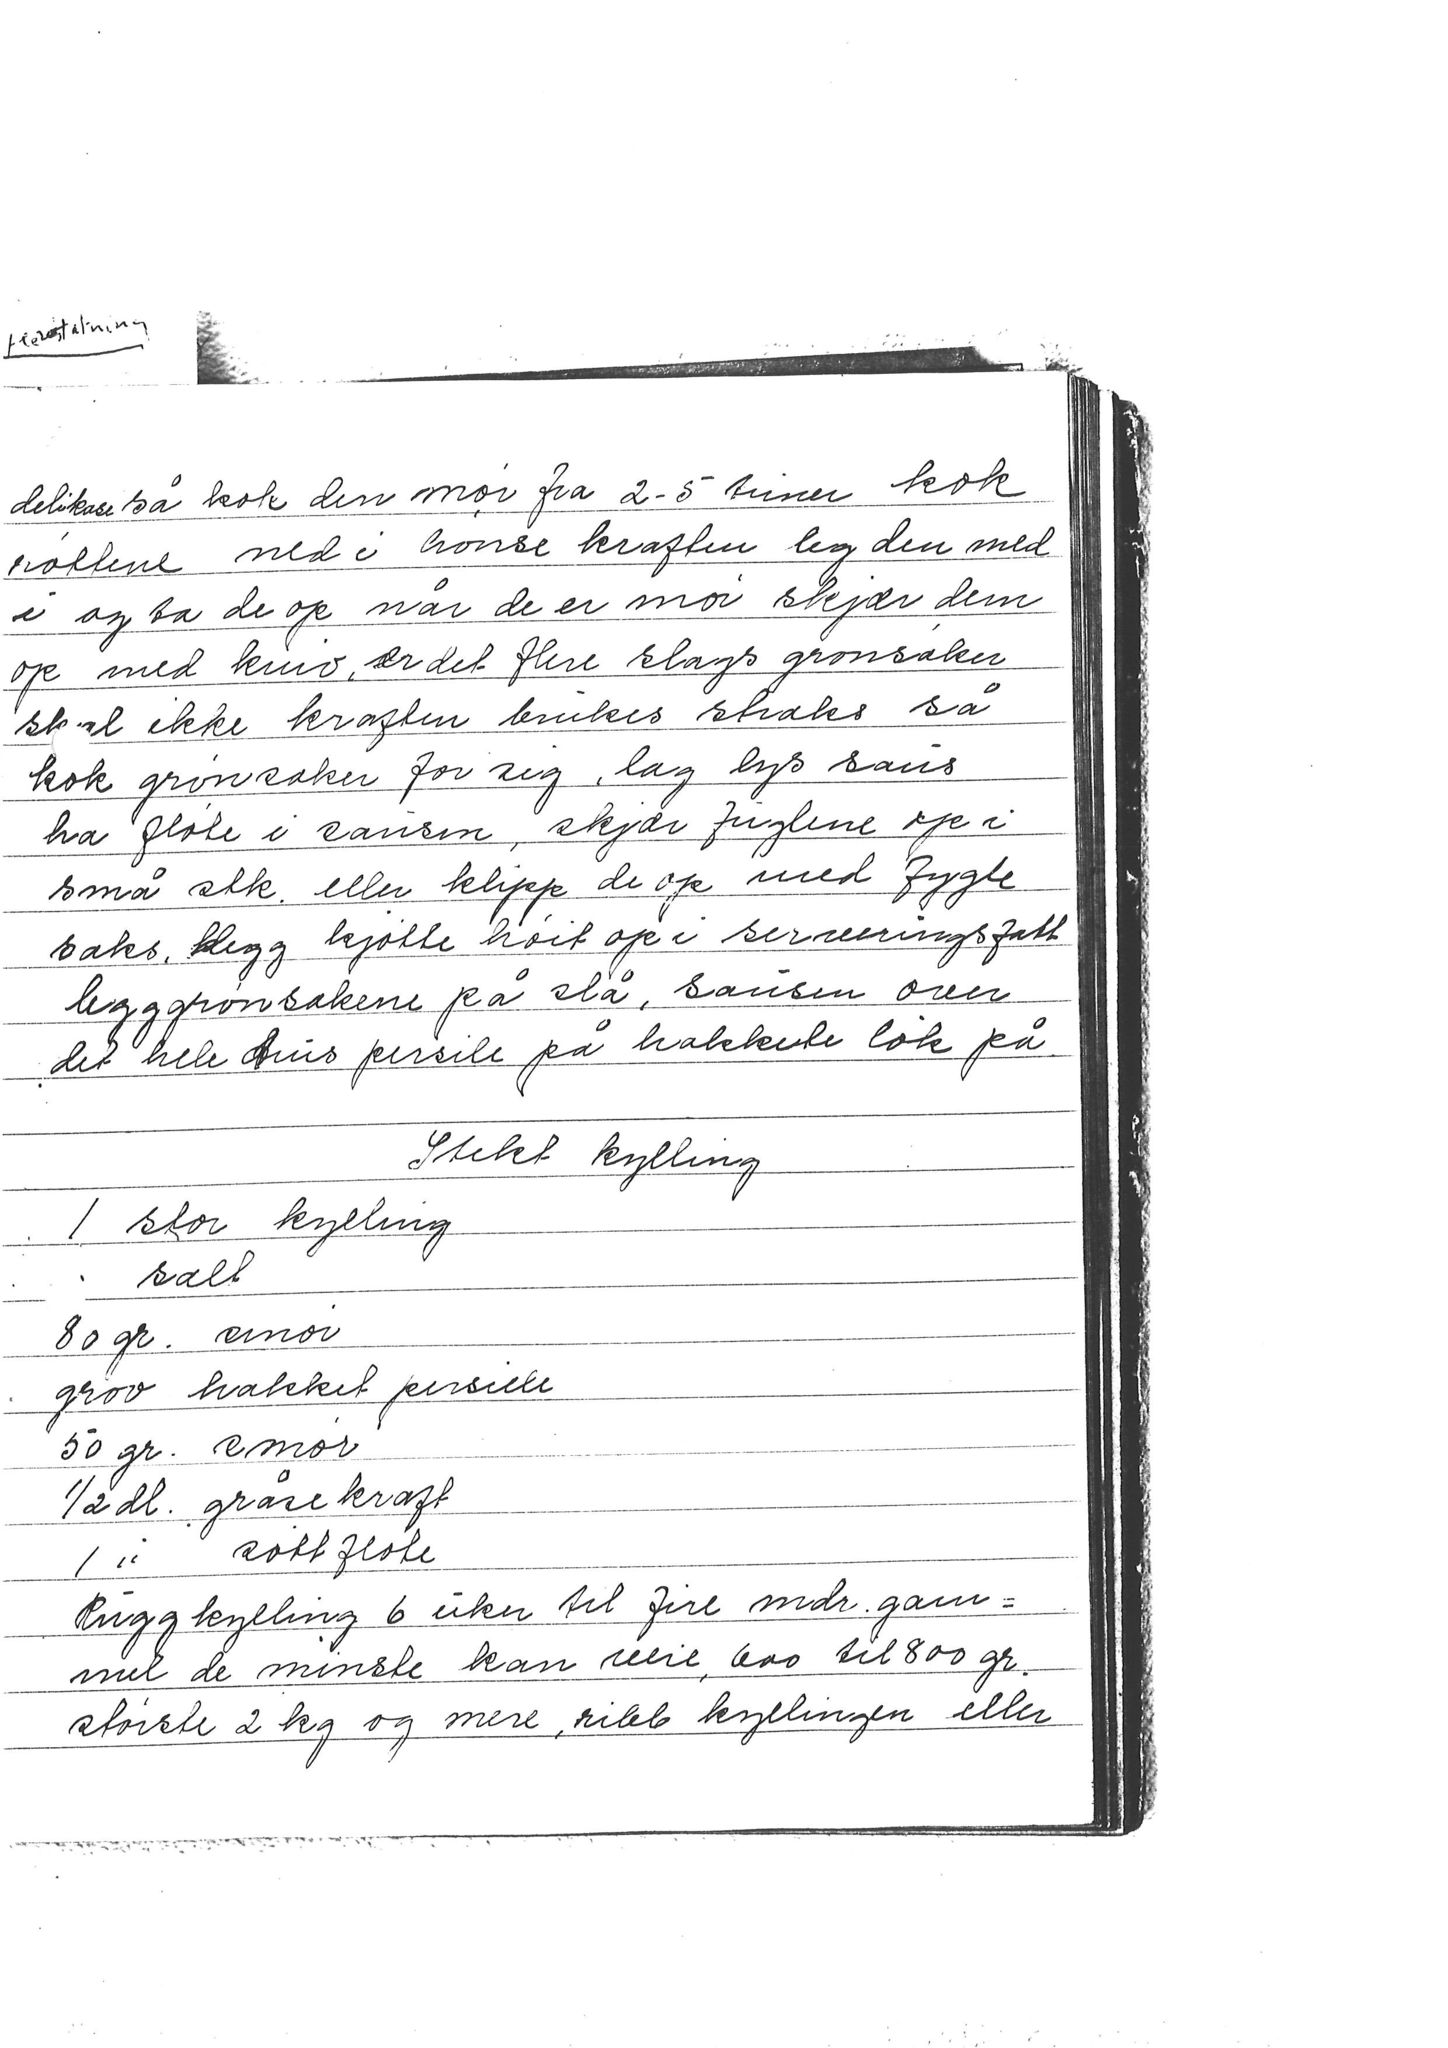 delikase så kok den mør fra 2-5 timer kok
røttene ned i hønse kraften leg den med
i og ta de op når de er mør skjær dem
op med kniv, er det flere slags grønsaker
skal ikke kraften brukes straks så
kok grønsaker for sig, lag lys saus
ha fløte i sausen, skjær fuglene op i
små stk. eller klipp de op med fugle
saks. legg kjøtte høit op i serveringsfatt
legg grønsakene på slå, sausen over
det hele drus persile på hakkede løk på
Stekt kylling
1 stor kylling
salt
80 gr. smør
grov hakket persille
50 gr. smør
1/2 dl. gråsekraft
1 " søtt fløte
kylling 6 uker til fire mdr. gam=
mel de minste kan veie, 600 til 800 gr.
største 2 kg og mere, ribb kyllingen eller